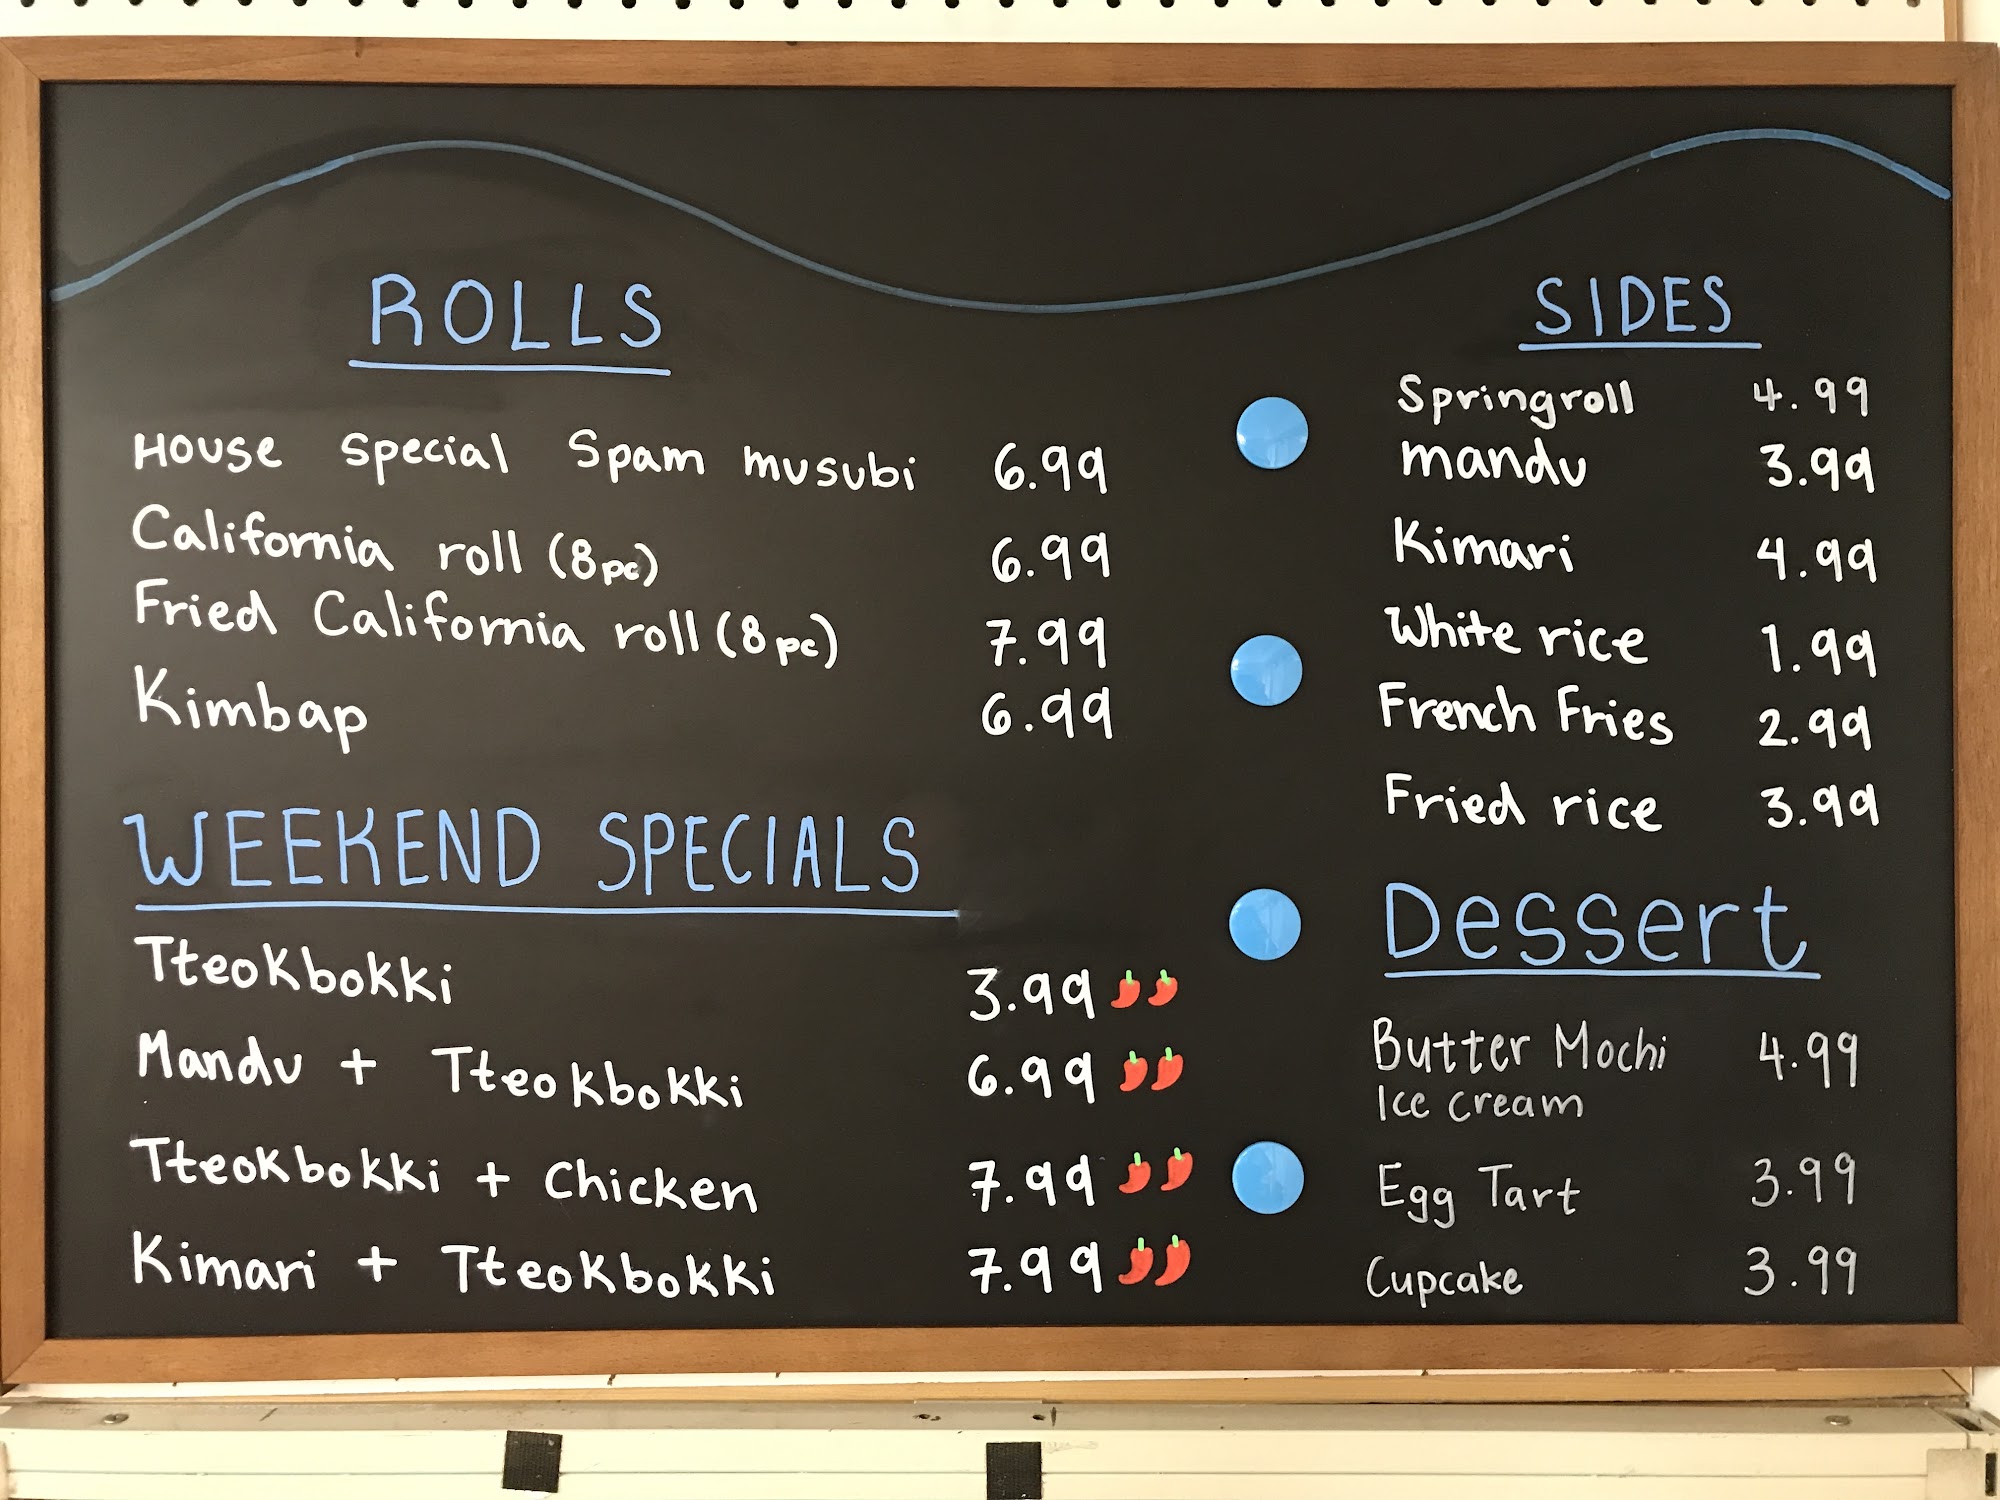 ROLLS
House Special Spam musubi 6.99
California roll (8pc) 6.99
Fried California roll (8pc) 7.99
Kimbap 6.99
WEEKEND SPECIALS
Tteokbokki 3.99
Mandu + Tteokbokki 6.99
Tteokbokki + Chicken 7.99
Kimari + Tteokbokki 7.99
SIDES
Springroll 4.99
mandu 3.99
Kimari 4.99
White rice 1.99
French Fries 2.99
Fried rice 3.99
Dessert
Butter Mochi 4.99
Ice cream
Egg Tart 3.99
Cupcake 3.99